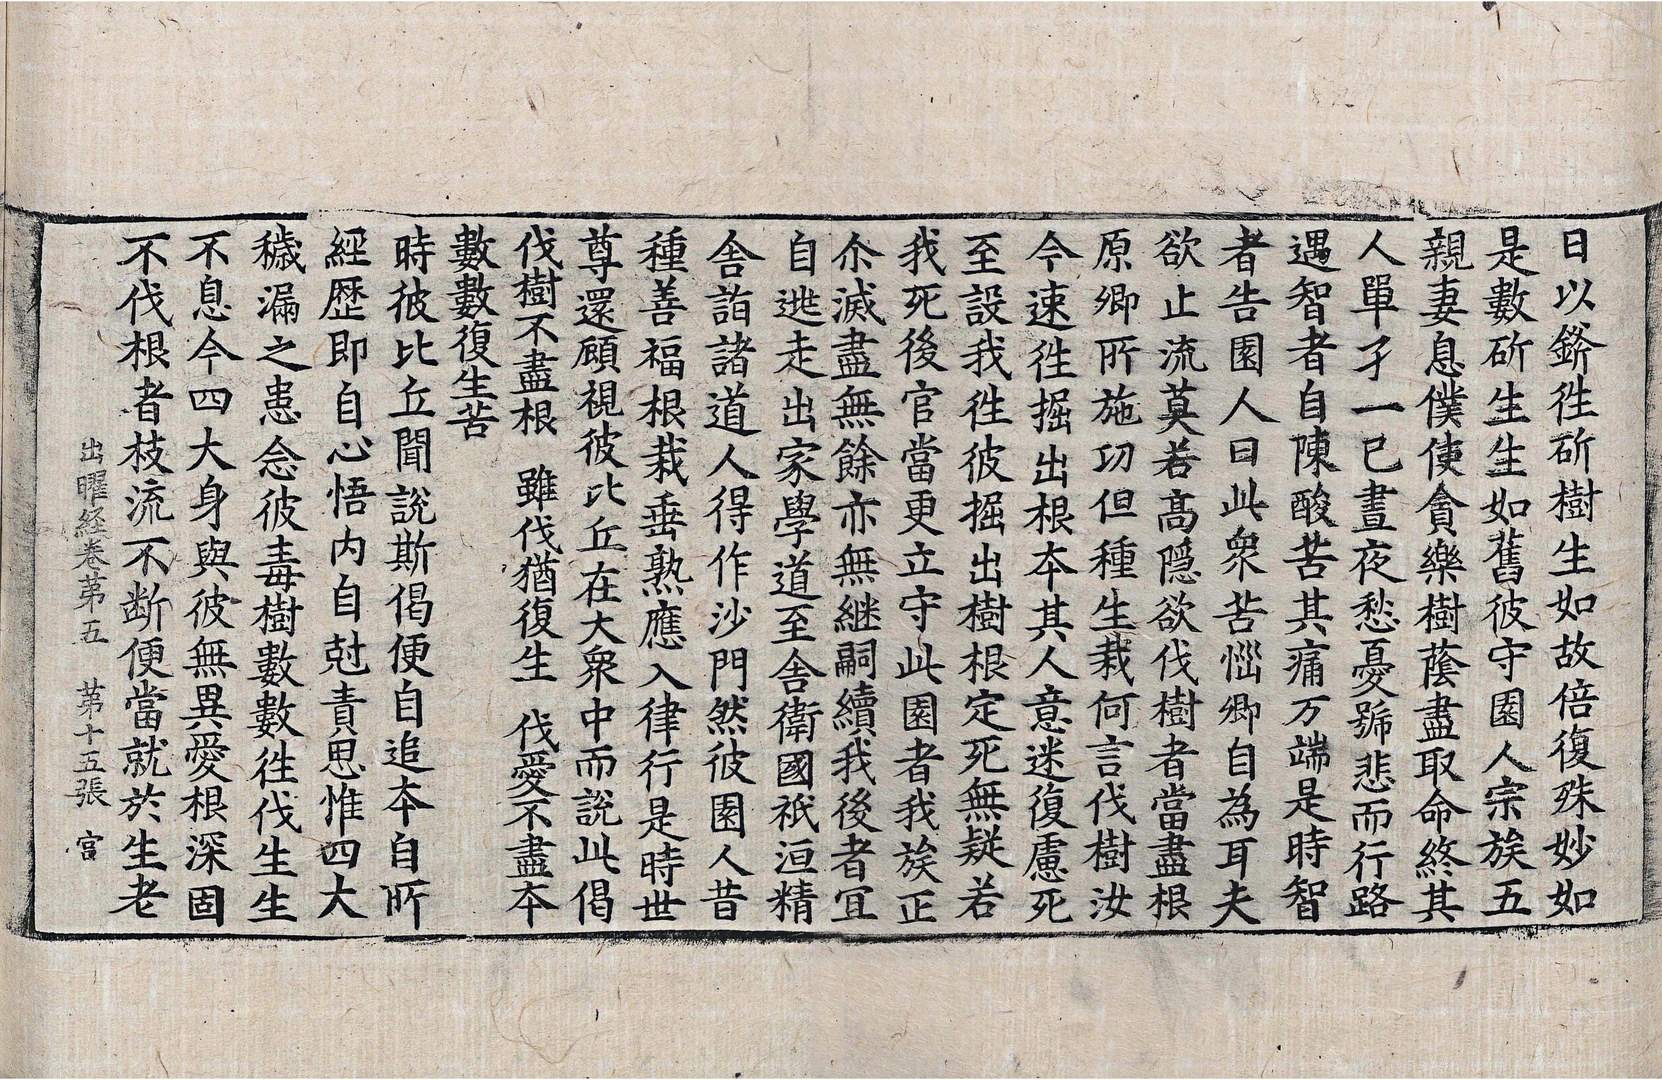 日以鏘徃斫樹生如故倍復殊妙如
是數斫生生如舊彼守園人宗族五
親妻息僕使貪樂樹蔭盡取命終其
人單孑一已晝夜愁憂號悲而行路
遇智者自陳酸苦其痛万端是時智
者告園人曰此衆苦惱卿自為耳夫
欲止流莫若高隱欲伐樹者當盡根
原卿所施功但種生栽何言伐樹汝
今速徃掘出根本其人意迷復慮死
至設我徃彼掘出樹根定死無疑若
我死後官當更立守此園者我族正
尒滅盡無餘亦無継嗣續我後者宜
自逃走出家學道至舍衛國祇洹精
舍詣諸道人得作沙門然彼園人昔
種善福根栽垂熟應入律行是時世
尊還顧視彼比丘在大衆中而說此偈
伐樹不盡根　雖伐猶復生　伐愛不盡本
數數復生苦
時彼比丘聞說斯偈便自追本自所
經歷即自心悟内自尅責思惟四大
穢漏之患念彼毒樹數數徃伐生生
不息今四大身與彼無異愛根深固
不伐根者枝流不断便當就於生老
出曜経卷第五　第十五張　宮